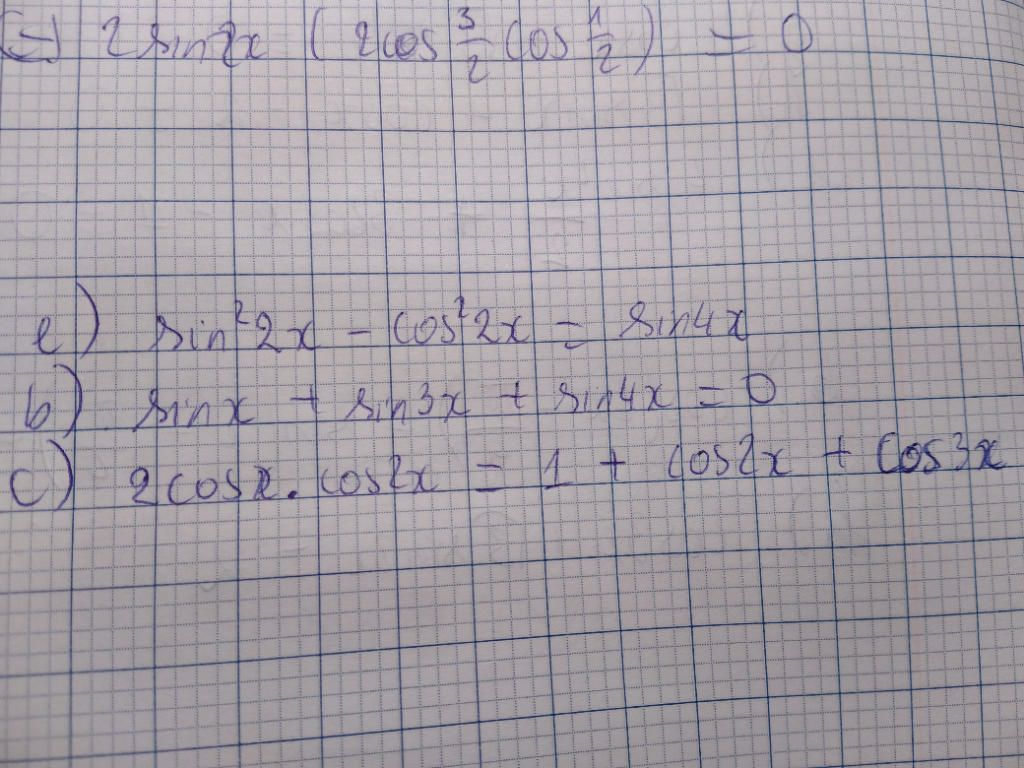 ⇔ 2 sin2x (2cos 3/2 cos 1/2) = 0
e) sin²2x - cos²2x = sin4x
b) sinx + sin3x + sin4x = 0
c) 2cosx.cos2x = 1 + cos2x + cos3x